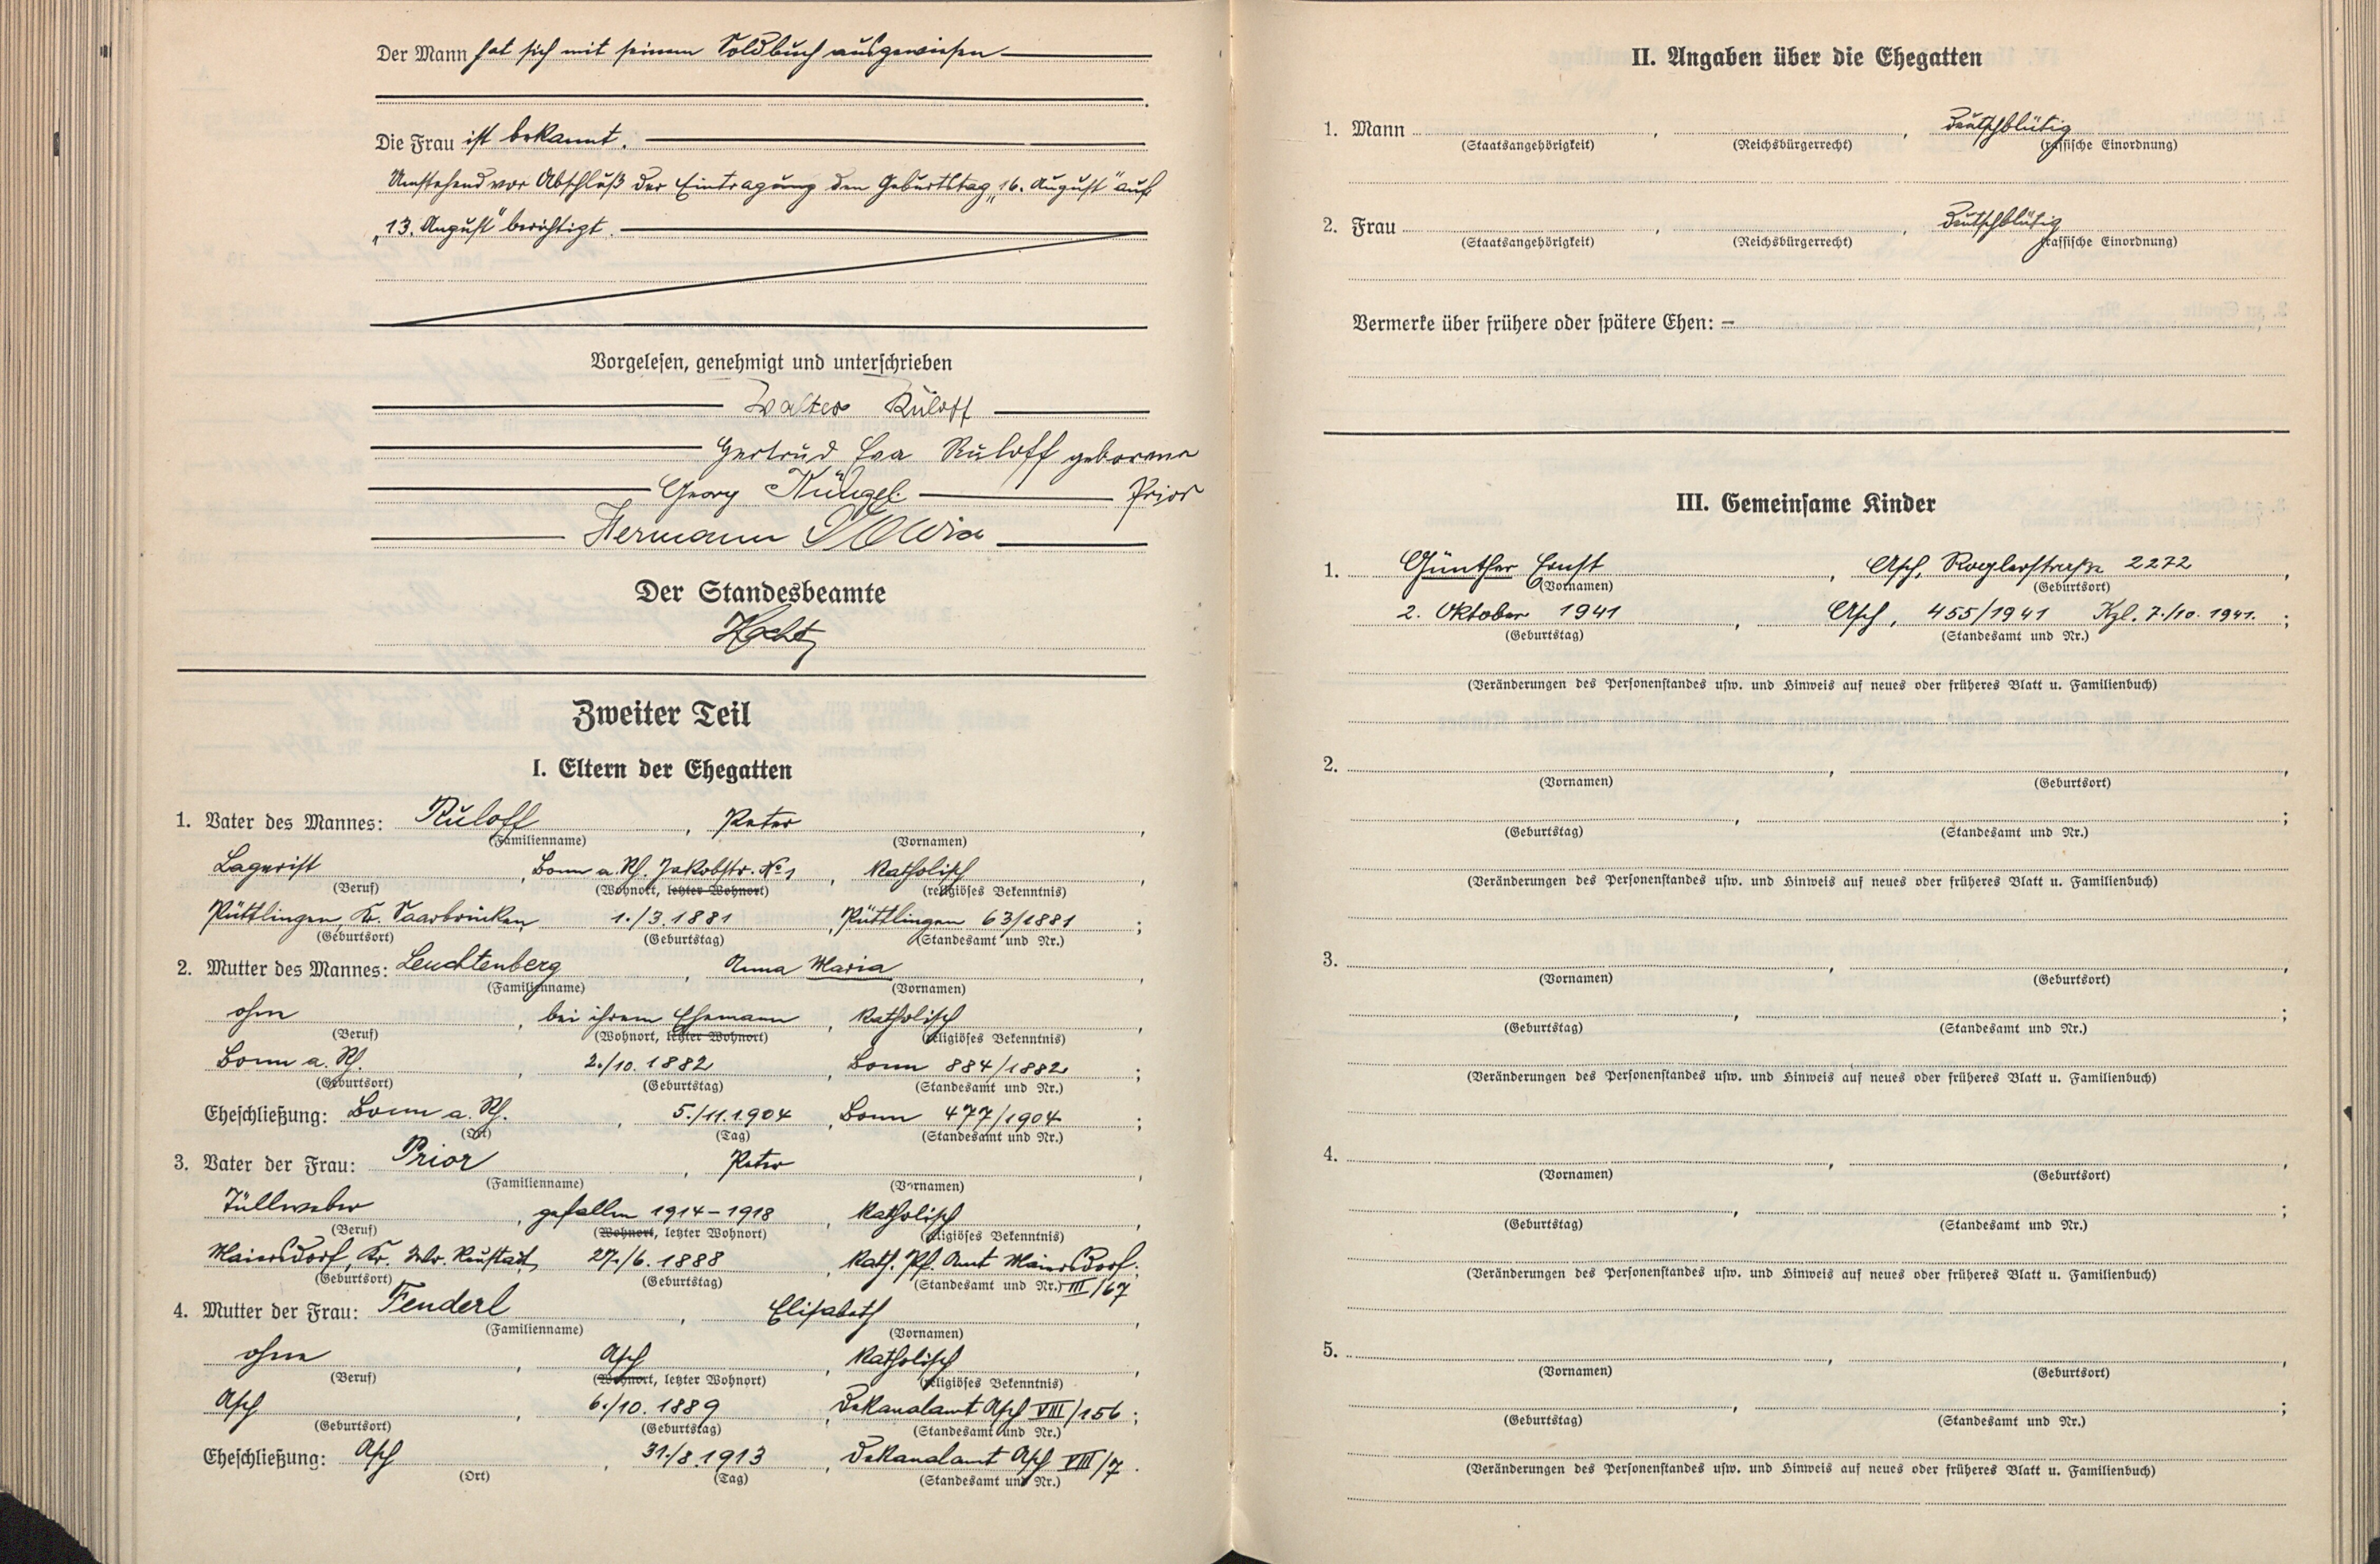 Der Mann hat sich mit seinem Soldbuch ausgewiesen
Die Frau ist bekannt.
Umstehend vor Abschluß der Eintragung den Geburtstag „16. August" auf
„13. August" berichtigt.
Vorgelesen, genehmigt und unterschrieben
Walter Ruloff
Gertrud Eva Ruloff geborene
Georg Prior
Hermann
Der Standesbeamte
Zweiter Teil
I. Eltern der Ehegatten
1. Vater des Mannes: Ruloff, Peter,
(Familienname) (Vornamen)
Lagerist, Bonn a. Rh. Jakobstr. No 1, Katholisch,
(Beruf) (Wohnort, letzter Wohnort) (religiöses Bekenntnis)
Püttlingen, Kr. Saarbrücken 1./3. 1881, Püttlingen 63/1881;
(Geburtsort) (Geburtstag) (Standesamt und Nr.)
2. Mutter des Mannes: Leuchtenberg, Anna Maria,
(Familienname) (Vornamen)
ohne, bei ihrem Ehemann, Katholisch,
(Beruf) (Wohnort, letzter Wohnort) (religiöses Bekenntnis)
Bonn a. Rh., 2./10. 1882, Bonn 884/1882;
(Geburtsort) (Geburtstag) (Standesamt und Nr.)
Eheschließung: Bonn a. Rh., 5./11. 1904, Bonn 477/1904;
(Ort) (Tag) (Standesamt und Nr.)
3. Vater der Frau: Prior, Peter,
(Familienname) (Vornamen)
Tüllweber, gefallen 1914-1918, Katholisch,
(Beruf) (Wohnort, letzter Wohnort) (religiöses Bekenntnis)
Maiersdorf, Kr. Wr. Neustadt, 27./6. 1888, Kath. Pf. Amt Maiersdorf;
(Geburtsort) (Geburtstag) (Standesamt und Nr.) III/67
4. Mutter der Frau: Fenderl, Elisabeth,
(Familienname) (Vornamen)
ohne, Asch, Katholisch,
(Beruf) (Wohnort, letzter Wohnort) (religiöses Bekenntnis)
Asch, 6./10. 1889, Dekanalamt Asch VIII/156;
(Geburtsort) (Geburtstag) (Standesamt und Nr.)
Eheschließung: Asch, 31./8. 1913, Dekanalamt Asch VIII/7.
(Ort) (Tag) (Standesamt und Nr.)
II. Angaben über die Ehegatten
1. Mann , , deutschblütig
(Staatsangehörigkeit) (Reichsbürgerrecht) (rassische Einordnung)
2. Frau , , deutschblütig
(Staatsangehörigkeit) (Reichsbürgerrecht) (rassische Einordnung)
Vermerke über frühere oder spätere Ehen: –
III. Gemeinsame Kinder
1. Günther Ernst, Asch, Roglerstraße 2272,
(Vornamen) (Geburtsort)
2. Oktober 1941, Asch, 455/1941 Kzl. 7./10. 1941.;
(Geburtstag) (Standesamt und Nr.)
(Veränderungen des Personenstandes usw. und Hinweis auf neues oder früheres Blatt u. Familienbuch)
2. , ,
(Vornamen) (Geburtsort)
, ;
(Geburtstag) (Standesamt und Nr.)
(Veränderungen des Personenstandes usw. und Hinweis auf neues oder früheres Blatt u. Familienbuch)
3. , ,
(Vornamen) (Geburtsort)
, ;
(Geburtstag) (Standesamt und Nr.)
(Veränderungen des Personenstandes usw. und Hinweis auf neues oder früheres Blatt u. Familienbuch)
4. , ,
(Vornamen) (Geburtsort)
, ;
(Geburtstag) (Standesamt und Nr.)
(Veränderungen des Personenstandes usw. und Hinweis auf neues oder früheres Blatt u. Familienbuch)
5. , ,
(Vornamen) (Geburtsort)
, ;
(Geburtstag) (Standesamt und Nr.)
(Veränderungen des Personenstandes usw. und Hinweis auf neues oder früheres Blatt u. Familienbuch)